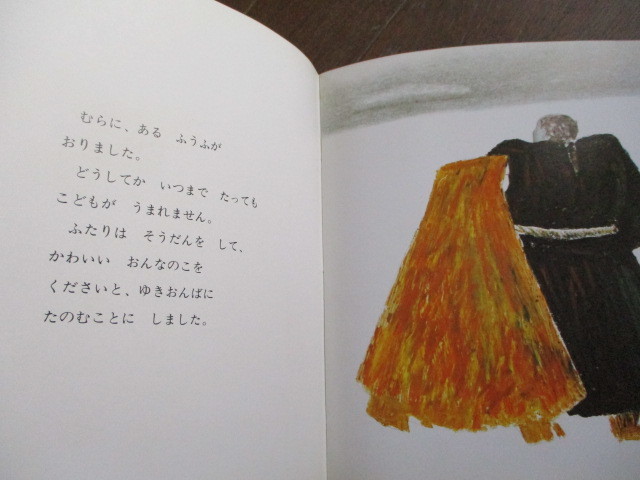 むらに、ある　ふうふが
おりました。
どうしてか　いつまで　たっても
こどもが　うまれません。
ふたりは　そうだんを　して、
かわいい　おんなのこを
くださいと、ゆきおんばに
たのむことに　しました。